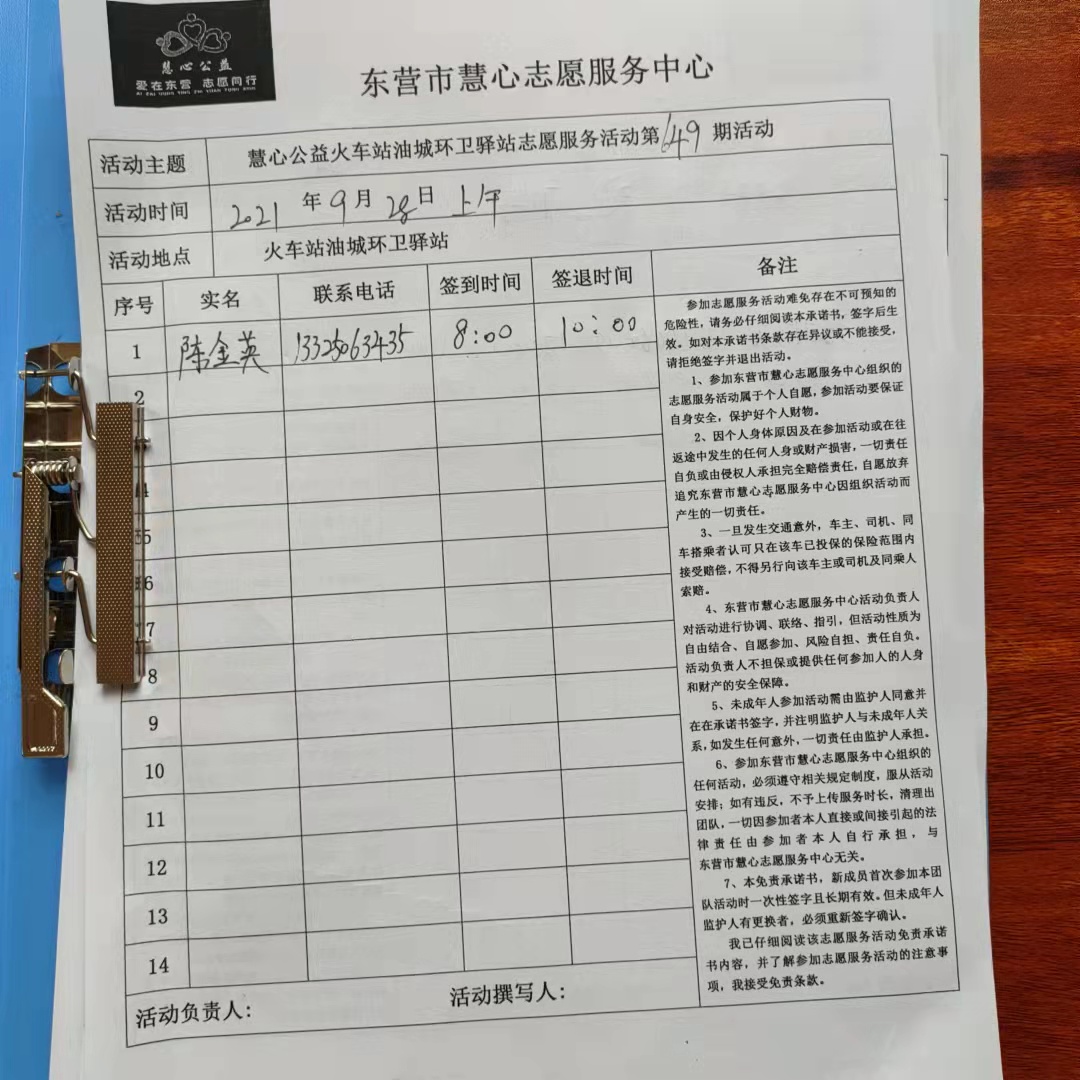 慧心公益
爱在东营 志愿同行
AI ZAI DONG YING ZHI YUAN TONG XING
东营市慧心志愿服务中心
活动主题 慧心公益火车站油城环卫驿站志愿服务活动第649期活动
活动时间 2021 年 9 月 28 日 上午
活动地点 火车站油城环卫驿站
序号 实名 联系电话 签到时间 签退时间 备注
1 陈金英 13325063435 8:00 10:00
2
4
5
6
7
8
9
10
11
12
13
14
参加志愿服务活动难免存在不可预知的
危险性，请务必仔细阅读本承诺书，签字后生
效。如对本承诺书条款存在异议或不能接受，
请拒绝签字并退出活动。
1、参加东营市慧心志愿服务中心组织的
志愿服务活动属于个人自愿，参加活动要保证
自身安全，保护好个人财物。
2、因个人身体原因及在参加活动或在往
返途中发生的任何人身或财产损害，一切责任
自负或由侵权人承担完全赔偿责任，自愿放弃
追究东营市慧心志愿服务中心因组织活动而
产生的一切责任。
3、一旦发生交通意外，车主、司机、同
车搭乘者认可只在该车已投保的保险范围内
接受赔偿，不得另行向该车主或司机及同乘人
索赔。
4、东营市慧心志愿服务中心活动负责人
对活动进行协调、联络、指引，但活动性质为
自由结合、自愿参加、风险自担、责任自负。
活动负责人不担保或提供任何参加人的人身
和财产的安全保障。
5、未成年人参加活动需由监护人同意并
在在承诺书签字，并注明监护人与未成年人关
系，如发生任何意外，一切责任由监护人承担。
6、参加东营市慧心志愿服务中心组织的
任何活动，必须遵守相关规定制度，服从活动
安排；如有违反，不予上传服务时长，清理出
团队，一切因参加者本人直接或间接引起的法
律责任由参加者本人自行承担，与
东营市慧心志愿服务中心无关。
7、本免责承诺书，新成员首次参加本团
队活动时一次性签字且长期有效。但未成年人
监护人有更换者，必须重新签字确认。
我已仔细阅读该志愿服务活动免责承诺
书内容，并了解参加志愿服务活动的注意事
项，我接受免责条款。
活动负责人： 活动撰写人：